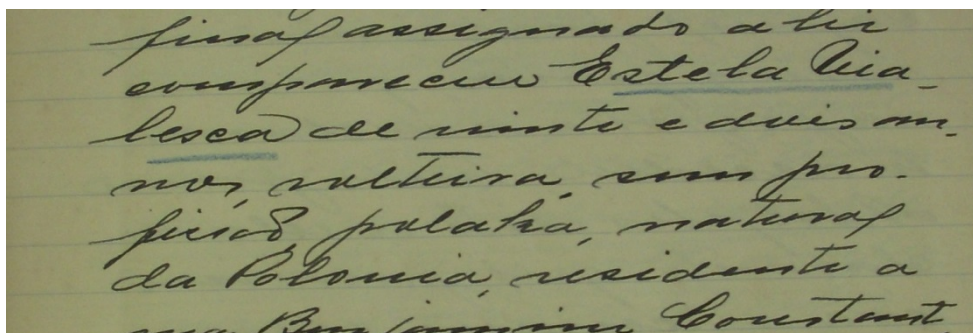 final assignado ahi
compareceu Estela Via-
lesca de vinte e dois an-
nos, solteira, sem pro-
fissão, polaka, natural
da Polonia, residente a
rua Benjamim Constant